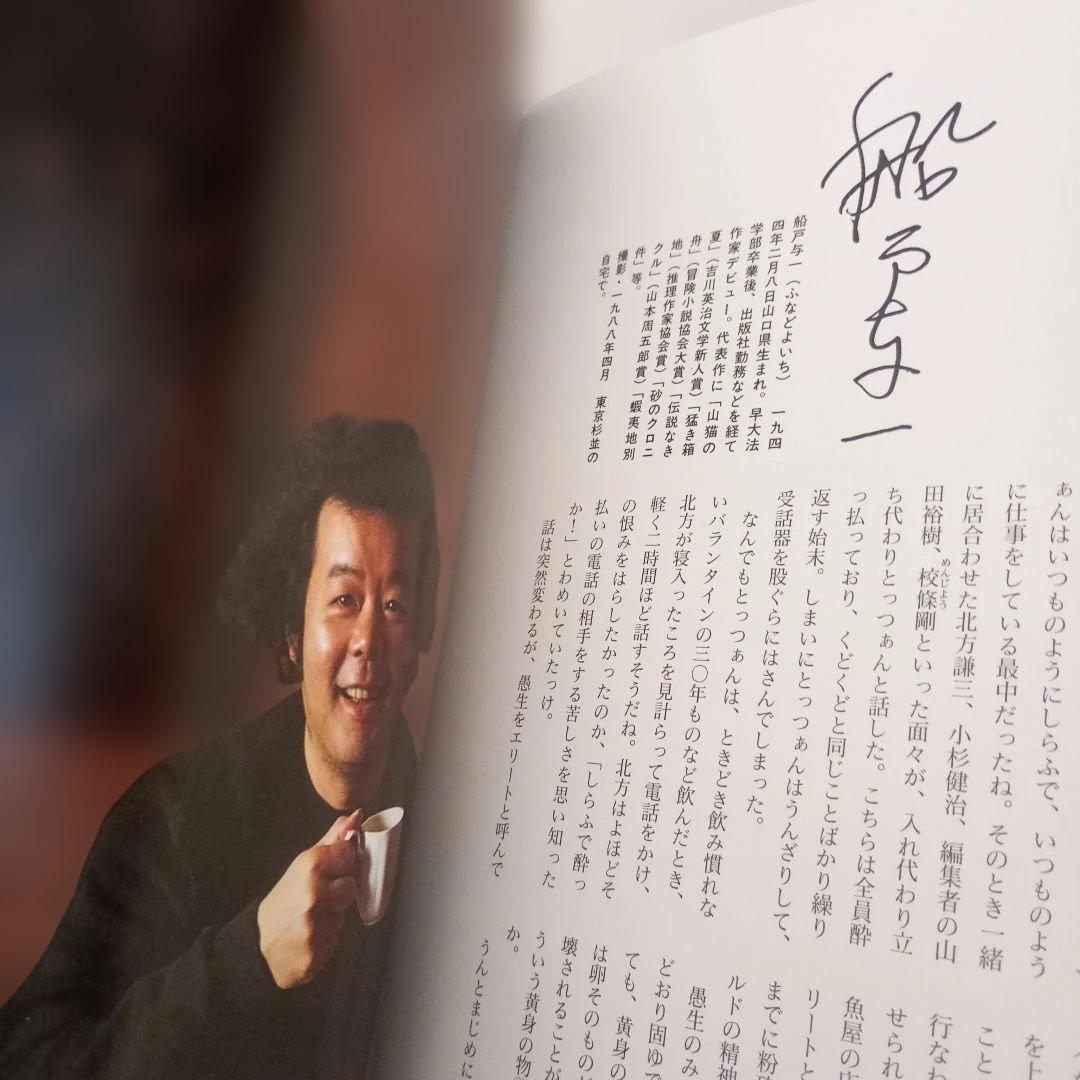 船戸与一
船戸与一（ふなどよいち）　一九四
四年二月八日山口県生まれ。早大法
学部卒業後、出版社勤務などを経て
作家デビュー。代表作に「山猫の
夏」（吉川英治文学新人賞）「猛き箱
舟」（冒険小説協会大賞）「伝説なき
地」（推理作家協会賞）「砂のクロニ
クル」（山本周五郎賞）「蝦夷地別
件」等。
撮影・一九八八年四月　東京杉並の
自宅で。
ぁんはいつものようにしらふで、いつものよう
に仕事をしている最中だったね。そのとき一緒
に居合わせた北方謙三、小杉健治、編集者の山
田裕樹、校條剛といった面々が、入れ代わり立
めんじよう
ち代わりとっつぁんと話した。こちらは全員酔
っ払っており、くどくどと同じことばかり繰り
返す始末。しまいにとっつぁんはうんざりして、
受話器を股ぐらにはさんでしまった。
なんでもとっつぁんは、ときどき飲み慣れな
いバランタインの三〇年ものなど飲んだとき、
北方が寝入ったころを見計らって電話をかけ、
軽く二時間ほど話すそうだね。北方はよほどそ
の恨みをはらしたかったのか、「しらふで酔っ
払いの電話の相手をする苦しさを思い知った
か！」とわめいていたっけ。
話は突然変わるが、愚生をエリートと呼んで
を上
こと
行なわ
せられ
魚屋の店
リートと
までに粉砕
ルドの精神
愚生のみ
どおり固ゆで
ても、黄身の
は卵そのものが
壊されることが
ういう黄身の物
か。
うんとまじめに